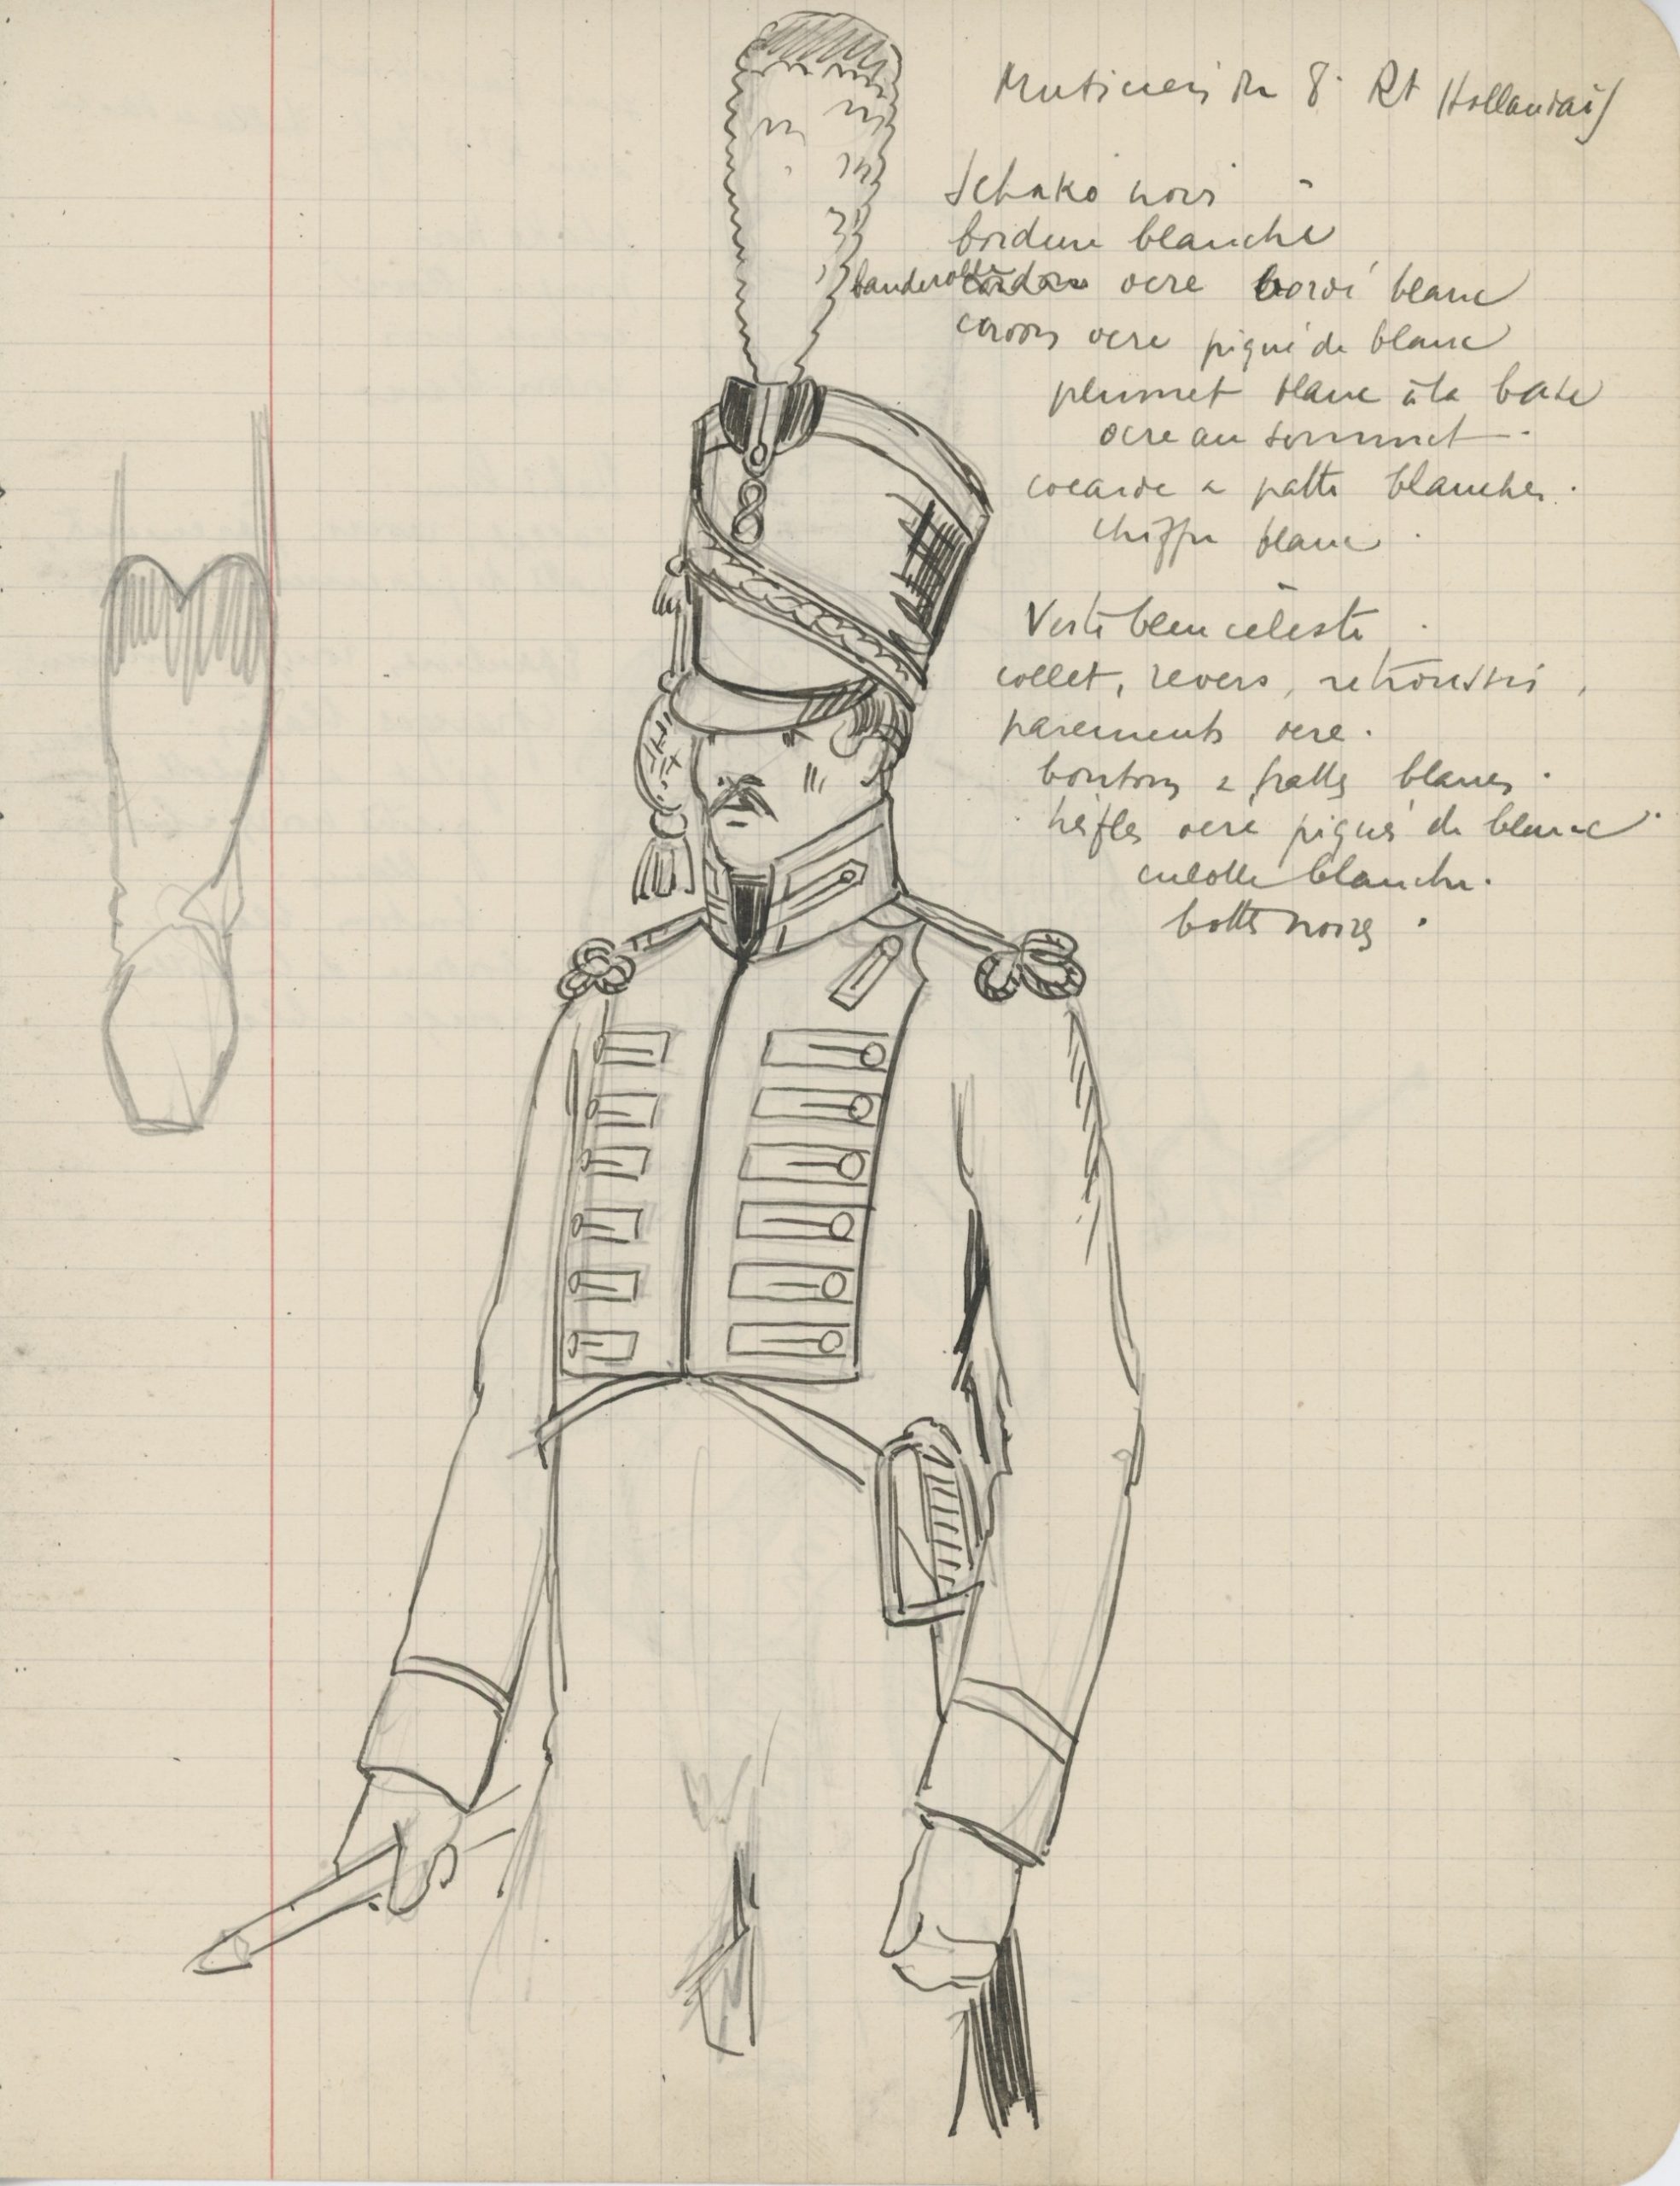 Musicien du 8e Rt Hollandais
Schako noir
bordure blanche
banderolle ocre bordé blanc
cordons ocre piqué de blanc
plumet blanc à la base
ocre au sommet
cocarde & patte blanches.
chiffre blanc.
8
Veste bleu céleste
collet, revers, retroussis,
parements ocre.
boutons & pattes blancs.
trèfles ocre piqué de blanc
culotte blanche.
bottes noires.